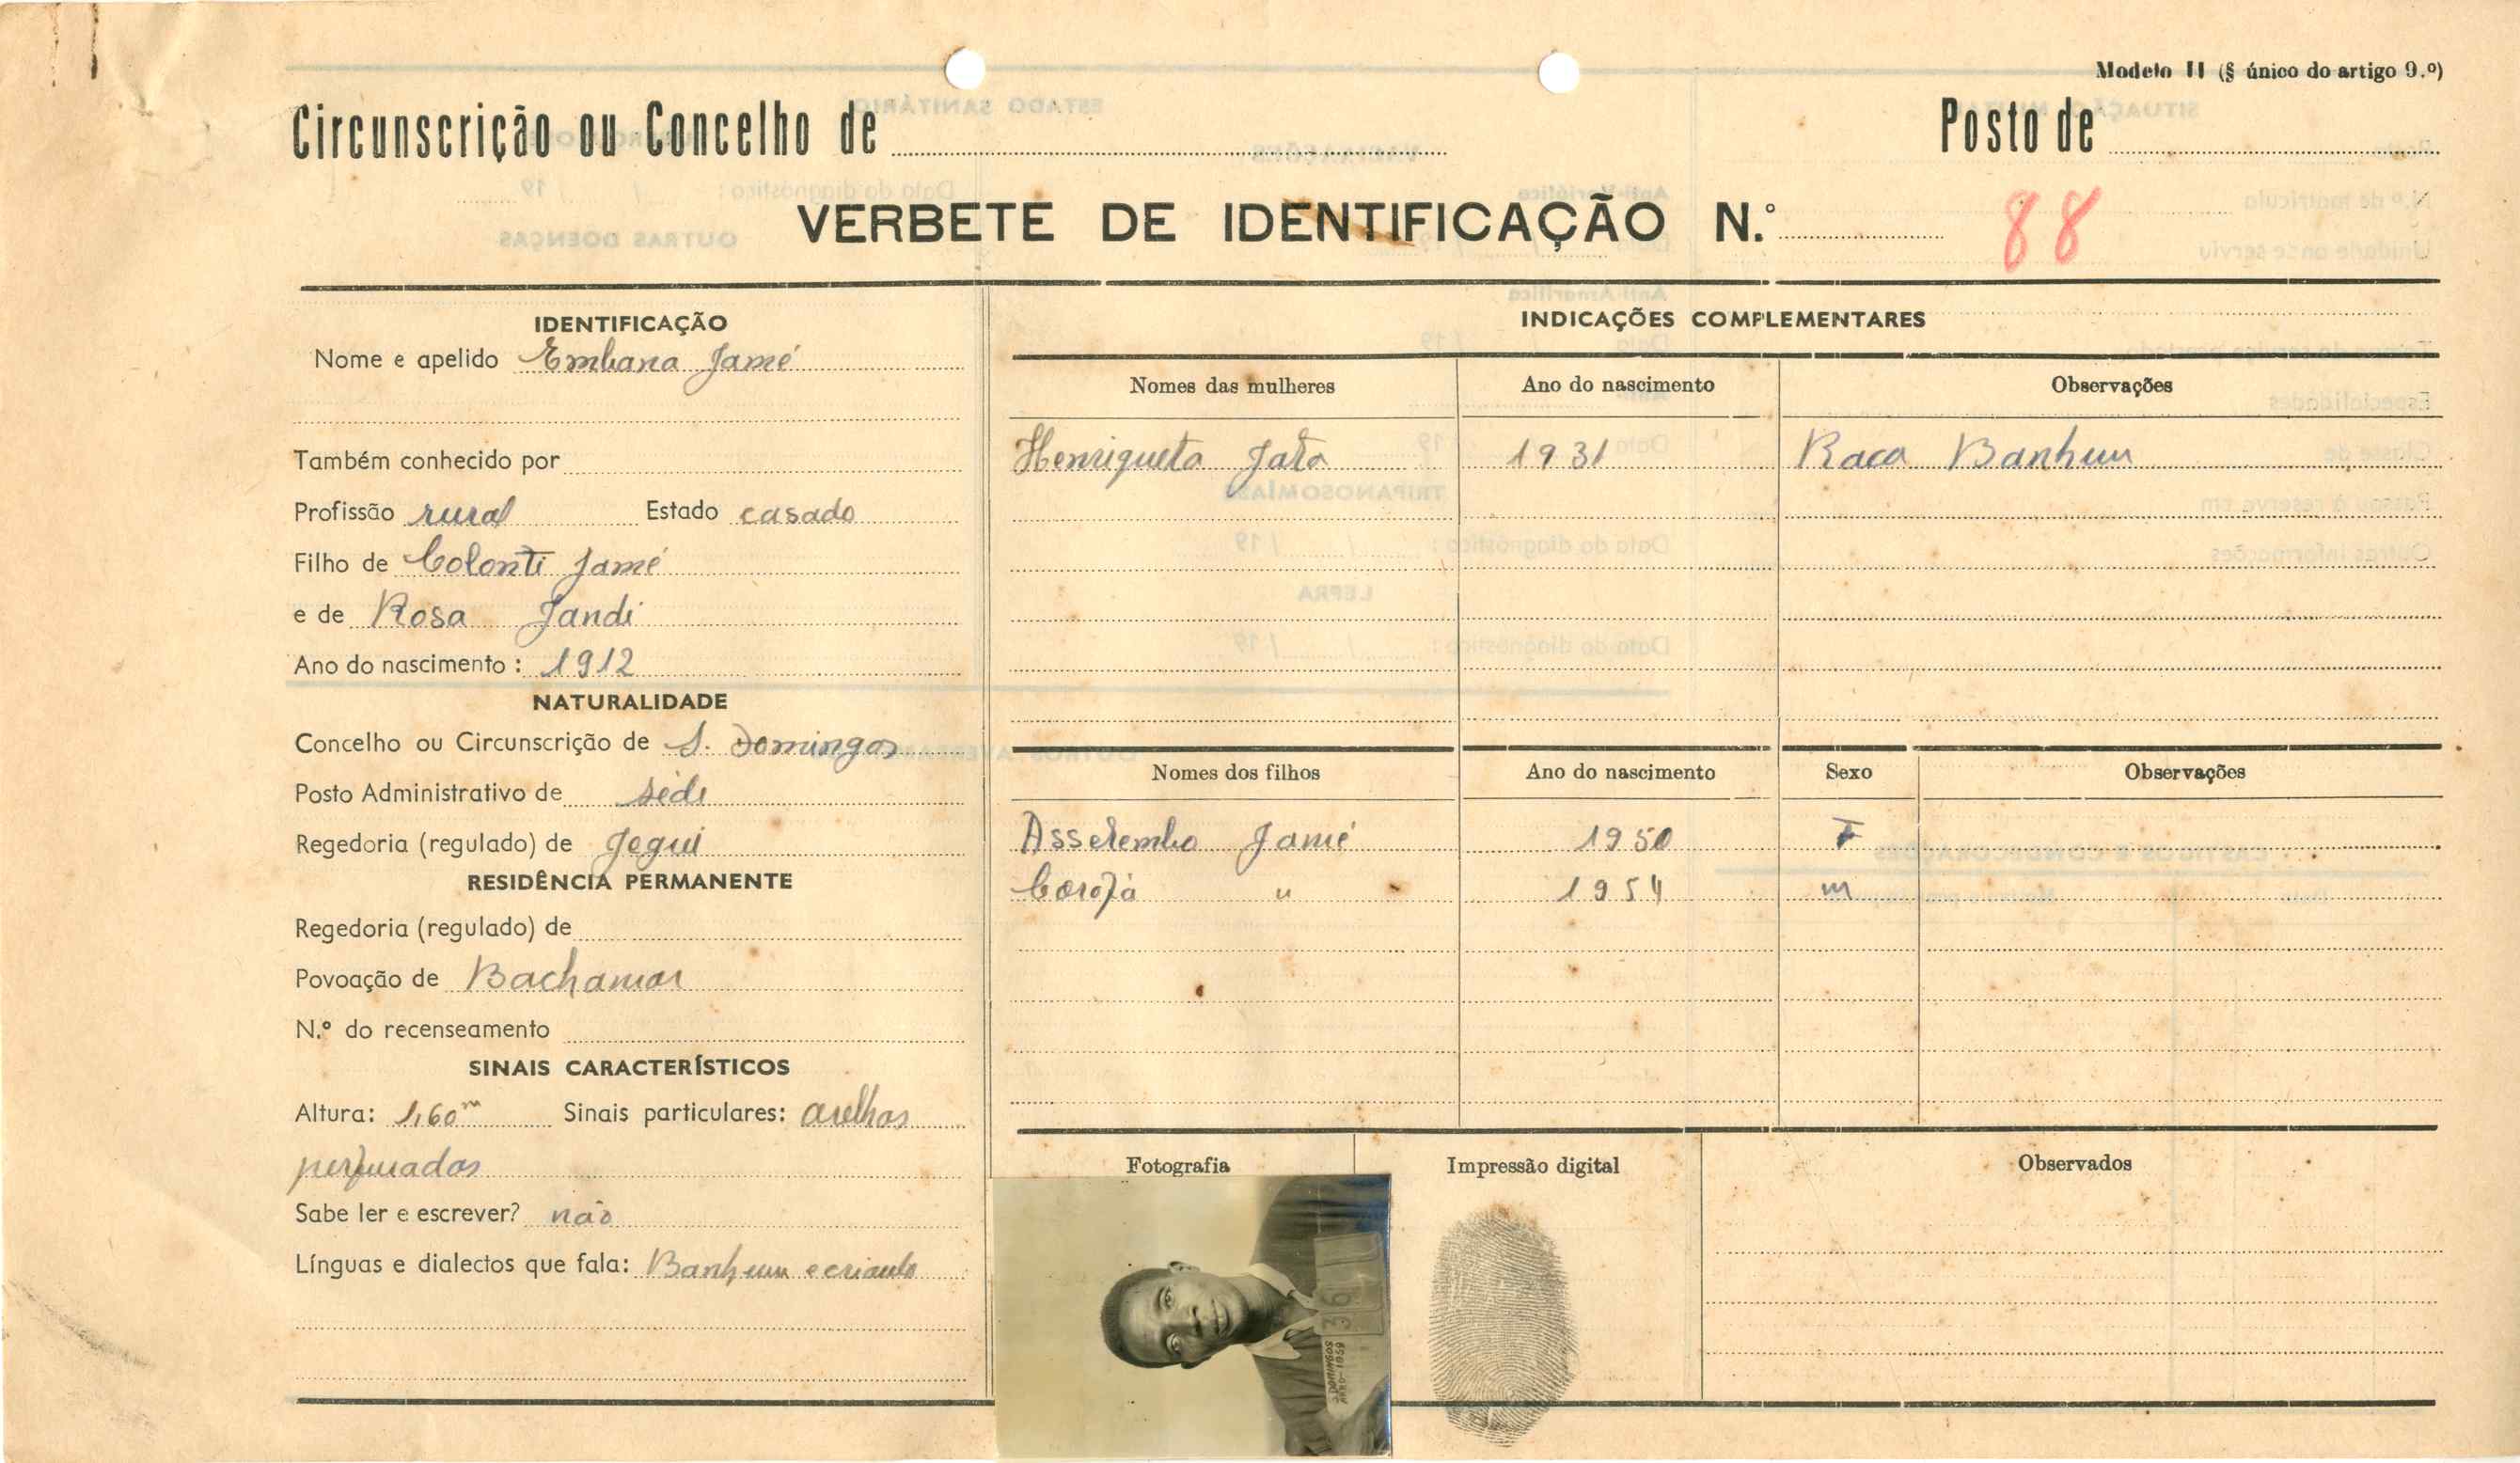 Modelo II (§ único do artigo 9.º)
Circunscrição ou Concelho de
Posto de
VERBETE DE IDENTIFICAÇÃO N.º 88
IDENTIFICAÇÃO
Nome e apelido Embana Jamé
Também conhecido por
Profissão rural Estado casado
Filho de Colonti Jamé
e de Rosa Jandi
Ano do nascimento : 1912
NATURALIDADE
Concelho ou Circunscrição de S. Domingos
Posto Administrativo de séde
Regedoria (regulado) de Jegui
RESIDÊNCIA PERMANENTE
Regedoria (regulado) de
Povoação de Bachamar
N.º do recenseamento
SINAIS CARACTERÍSTICOS
Altura: 1,60m Sinais particulares: orelhas
perfuradas
Sabe ler e escrever? não
Línguas e dialectos que fala: Banhum e crioulo
INDICAÇÕES COMPLEMENTARES
Nomes das mulheres Ano do nascimento Observações
Henriqueta Jata 1931 Raca Banhum
Nomes dos filhos Ano do nascimento Sexo Observações
Jamé 1950 F
" 1954 m
Fotografia Impressão digital Observados
DOMINGOS
ANO-1959